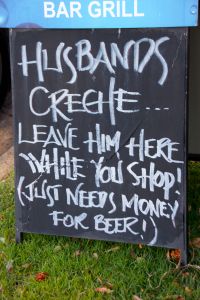 BAR GRILL
HUSBANDS
CRECHE...
LEAVE HIM HERE
WHILE YOU SHOP!
(JUST NEEDS MONEY
FOR BEER!)